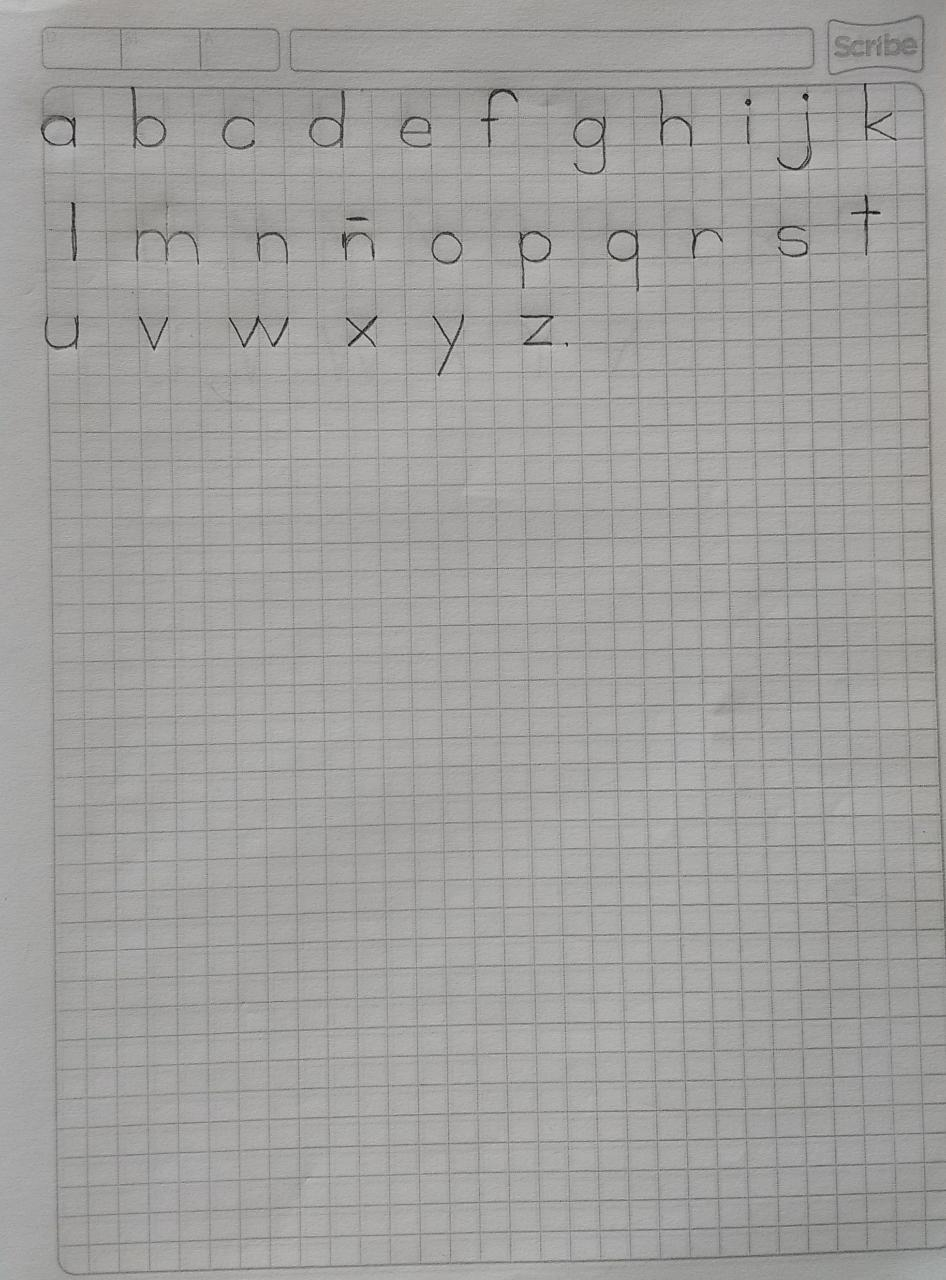 Scribe
a b c d e f g h i j k
l m n ñ o p q r s t
u v w x y z.